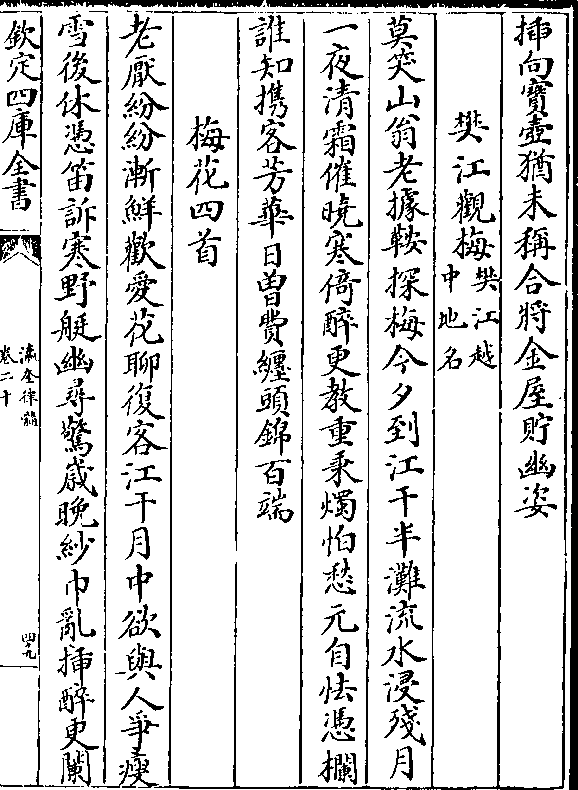 揷向寶壺猶未稱合將金屋貯幽姿
樊江觀梅樊江越中地名
莫笑山翁老據鞍探梅今夕到江干半灘流水浸殘月
一夜清霜催曉寒倚醉更教重秉燭怕愁元自怯憑欄
誰知攜客芳華日曽費纒頭錦百端
梅花四首
老厭紛紛漸鮮歡愛花聊復客江干月中欲與人爭瘦
雪後休憑笛訴寒野艇幽尋驚歳晚紗巾亂揷醉更闌
欽定四庫全書
瀛奎律髓
卷二十
四九